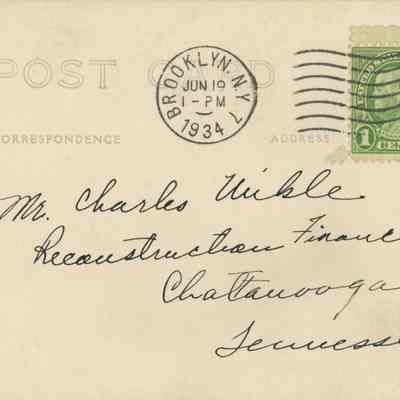 POST CARD
BROOKLYN, N.Y. 7
JUN 19
1 - PM
1934
CORRESPONDENCE ADDRESS
1
Mr. Charles Nickle
Reconstruction Financ
Chattanooga
Tennesse